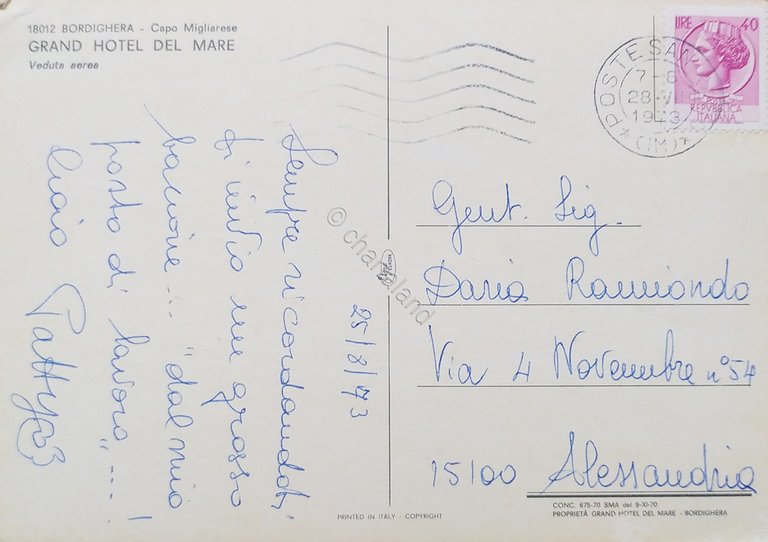 18012 BORDIGHERA - Capo Migliarese
GRAND HOTEL DEL MARE
Veduta aerea
25/8/73
Sempre ricordandoti
ti invio un grosso
bacione... "dal mio
posto di lavoro"...!
Ciao Patty
LIRE 40
REPVBBLICA
ITALIANA
POSTE SAN
7-8
28-VI
1973
(IM)
Gent. Sig.
Dario Raimondo
Via 4 Novembre n° 54
15100 Alessandria
CONC. 675-70 SMA del 9-XI-70
PROPRIETÀ GRAND HOTEL DEL MARE - BORDIGHERA
PRINTED IN ITALY - COPYRIGHT
© chartaland